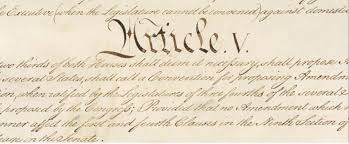 e Executive (when the Legislature cannot be convened) against domesti
Article. V.
two thirds of both Houses shall deem it necessary, shall propose
several States, shall call a Convention for proposing Amendm
when ratified by the Legislatures of three fourths of the several
proposed by the Congress; Provided that no Amendment which
nner affect the first and fourth Clauses in the Ninth Section of
age in the Senate.